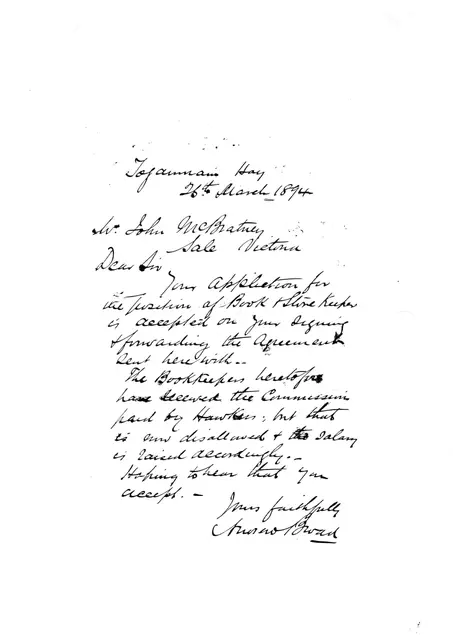 Togānmain Hay
26th March 1894
Mr John McBratney
Sale Victoria
Dear Sir
Your application for
the position of Book & Store Keeper
is accepted on your signing
& forwarding the Agreement
sent here with. -
The Bookkeepers heretofore
have received the Commission
paid by Hawkers, but that
is now disallowed & the salary
is raised accordingly. -
Hoping to hear that you
accept. -
Yours faithfully
Andrew